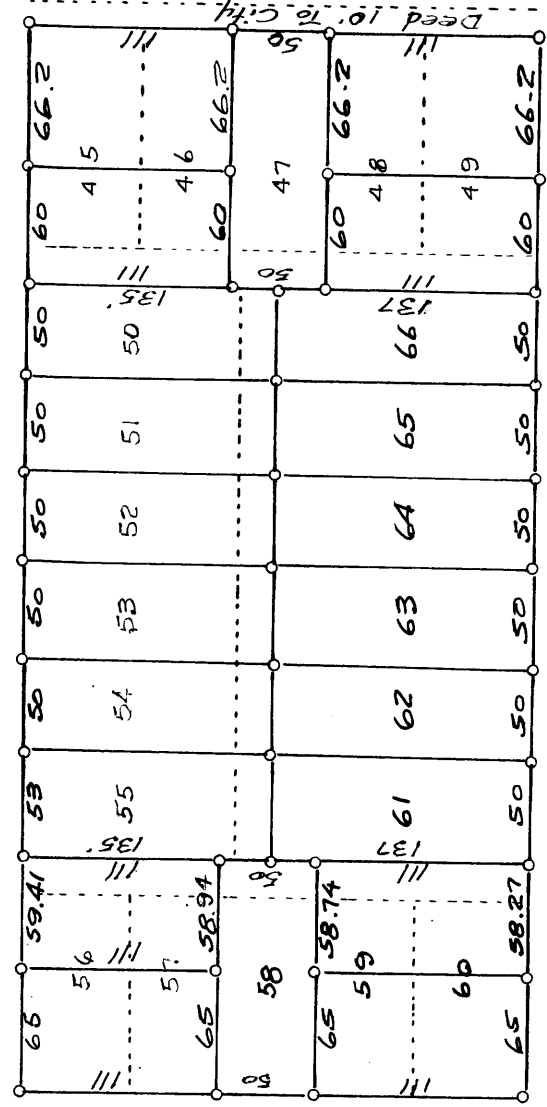 Deed 10' To City
111 50 111
66.2 66.2 66.2 66.2
45 46 47 48 49
60 60 60 60
111 50 111
135' 137
50 50 66 50
50 51 65 50
50 52 64 50
50 53 63 50
50 54 62 50
53 55 61 50
135' 137
111 50 111
59.41 58.94 58.74 58.27
56 111 57 58 59 60
65 65 65 65
111 50 111